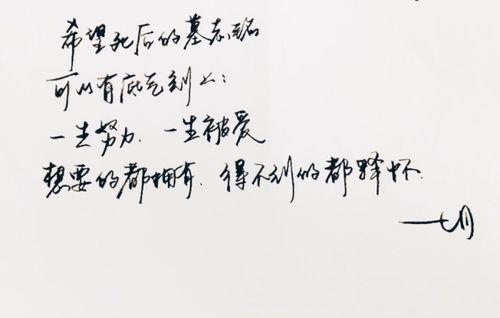 希望死后的墓志铭
可以有底气刻上：
一生努力．一生被爱
想要的都拥有．得不到的都释怀．
一七月